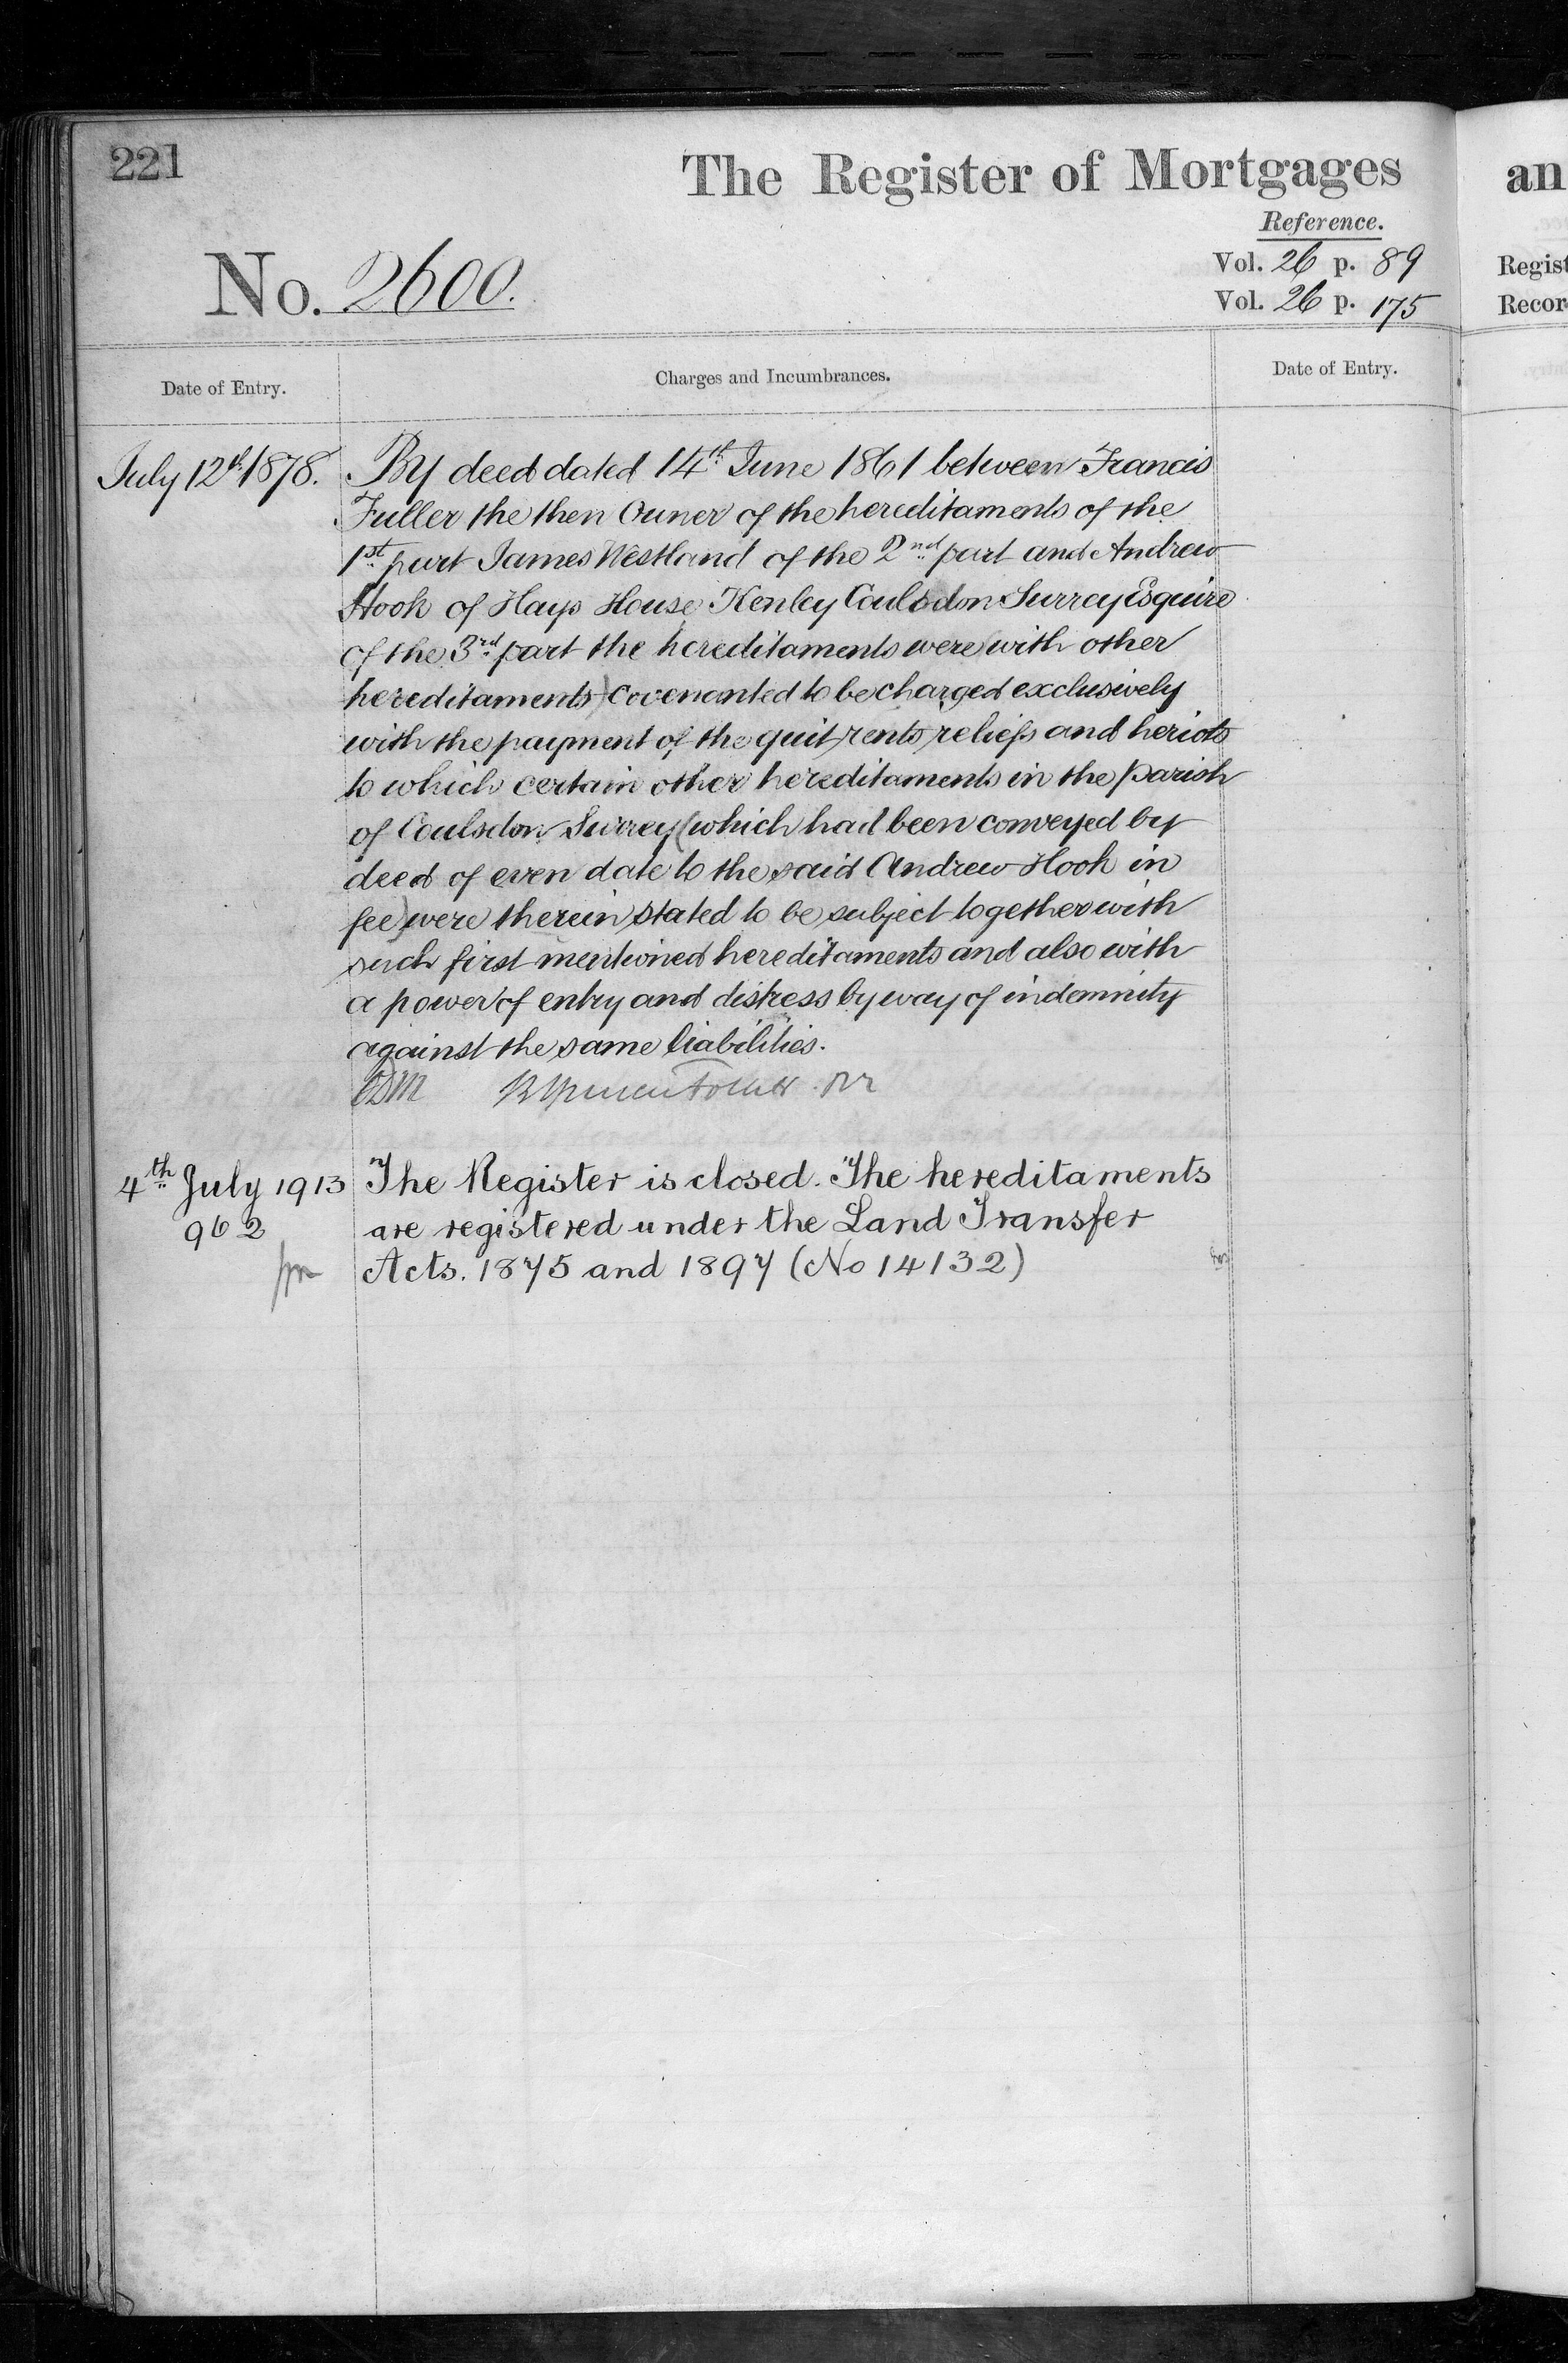 221
The Register of Mortgages
an
Reference.
Vol. 26 p. 89
Regist
No. 2600.
Vol. 26 p. 175
Recor
Date of Entry.
Charges and Incumbrances.
Date of Entry.
July 12th 1878. By deed dated 14th June 1861 between Francis
Fuller the then Owner of the hereditaments of the
1st part James Westland of the 2nd part and Andrew
Hook of Hays House Kenley Coulsdon Surrey Esquire
of the 3rd part the hereditaments were (with other
hereditaments) covenanted to be charged exclusively
with the payment of the quit rents reliefs and heriots
to which certain other hereditaments in the Parish
of Coulsdon Surrey (which had been conveyed by
deed of even date to the said Andrew Hook in
fee) were therein stated to be subject together with
such first mentioned hereditaments and also with
a power of entry and distress by way of indemnity
against the same liabilities.
4th July 1913 The Register is closed. The hereditaments
962 are registered under the Land Transfer
Acts. 1875 and 1897 (No 14132)